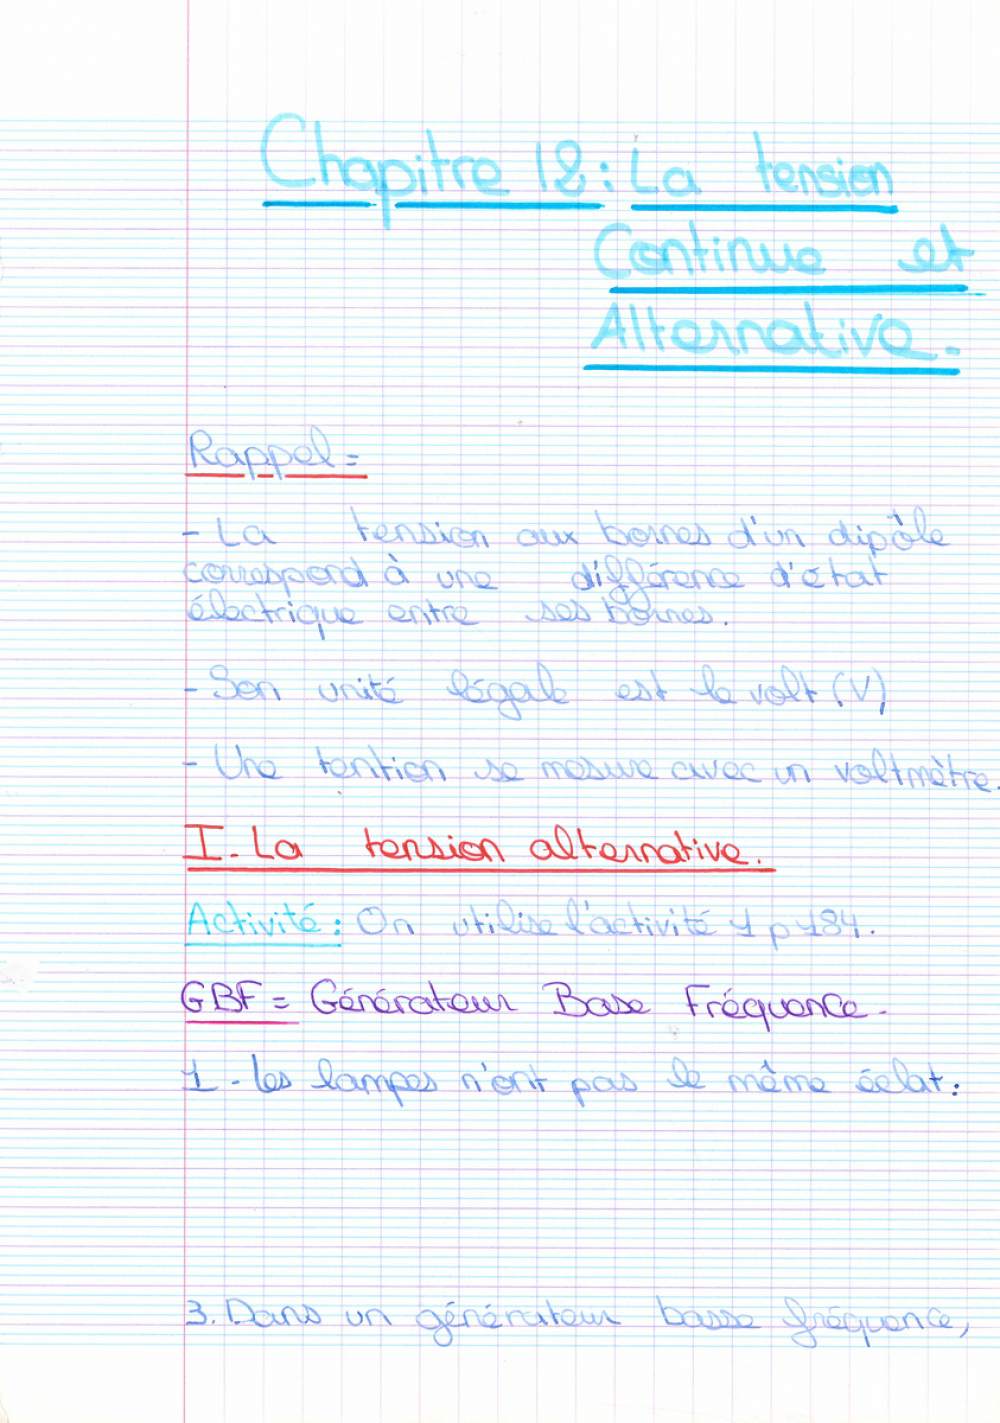 Chapitre 12 : La tension
Continue et
Alternative.
Rappel =
- La tension aux bornes d'un dipôle
correspond à une différence d'état
électrique entre ses bornes.
- Son unité légale est le volt (V)
- Une tention se mesure avec un voltmètre.
I. La tension alternative.
Activité : On utilise l'activité 1 p 184.
GBF = Générateur Base Fréquence.
1 - les lampes n'ont pas le même éclat :
3. Dans un générateur basse fréquence,